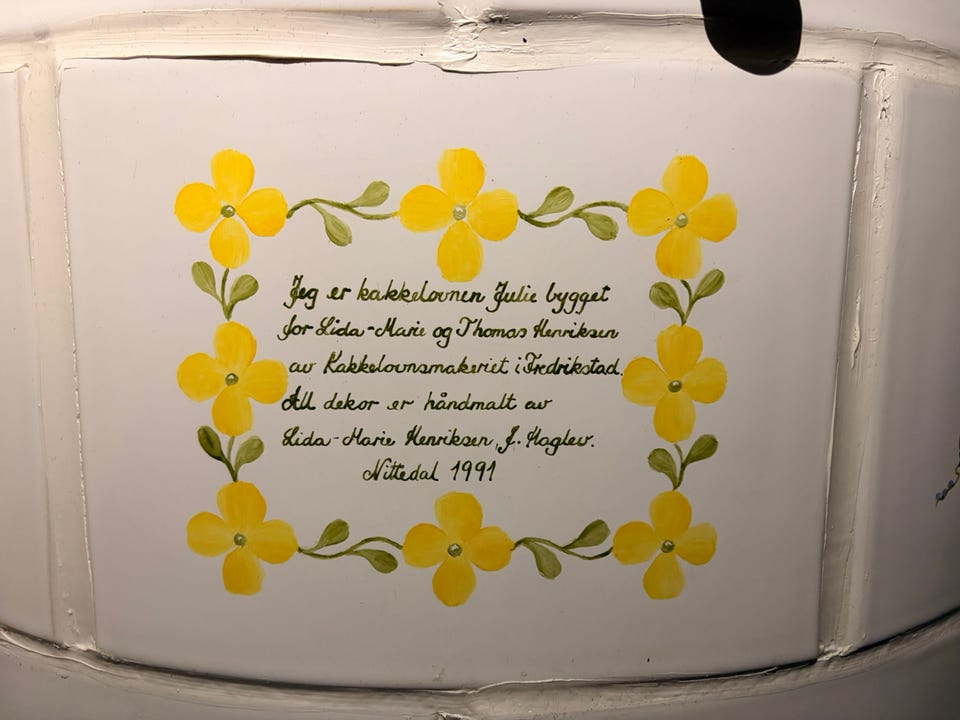 Jeg er kakkelovnen Julie bygget
for Lida-Marie og Thomas Henriksen
av Kakkelovnsmakeriet i Fredrikstad.
All dekor er håndmalt av
Lida-Marie Henriksen, f. Haglev.
Nittedal 1991